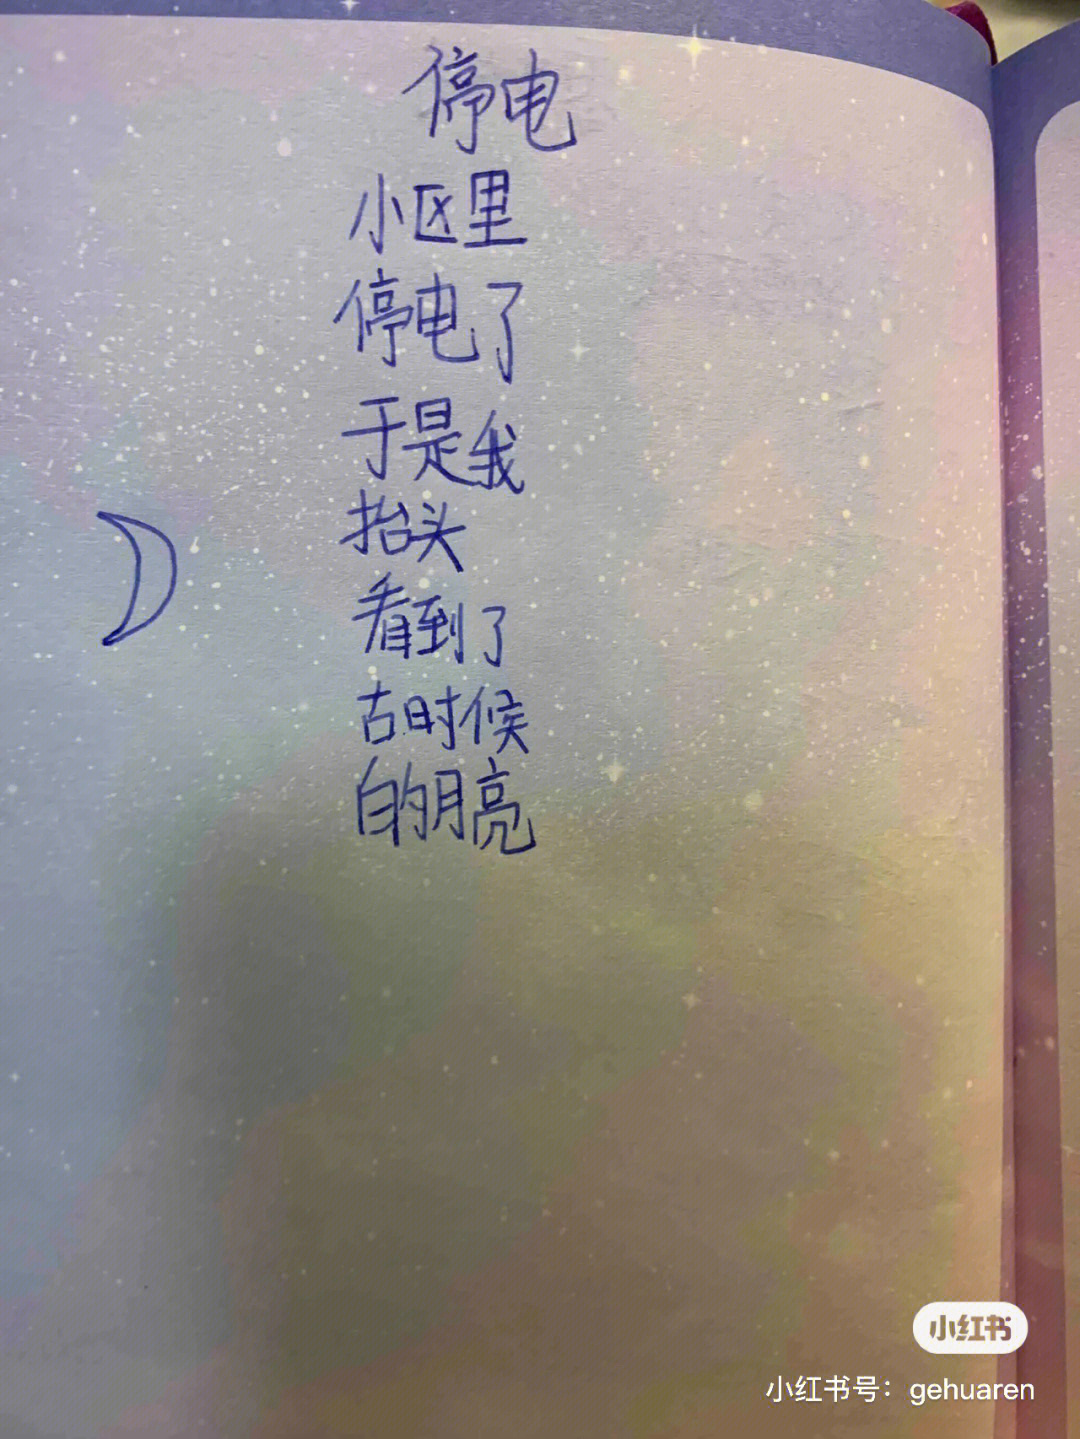 停电
小区里
停电了
于是我
抬头
看到了
古时候
的月亮
小红书
小红书号：gehuaren